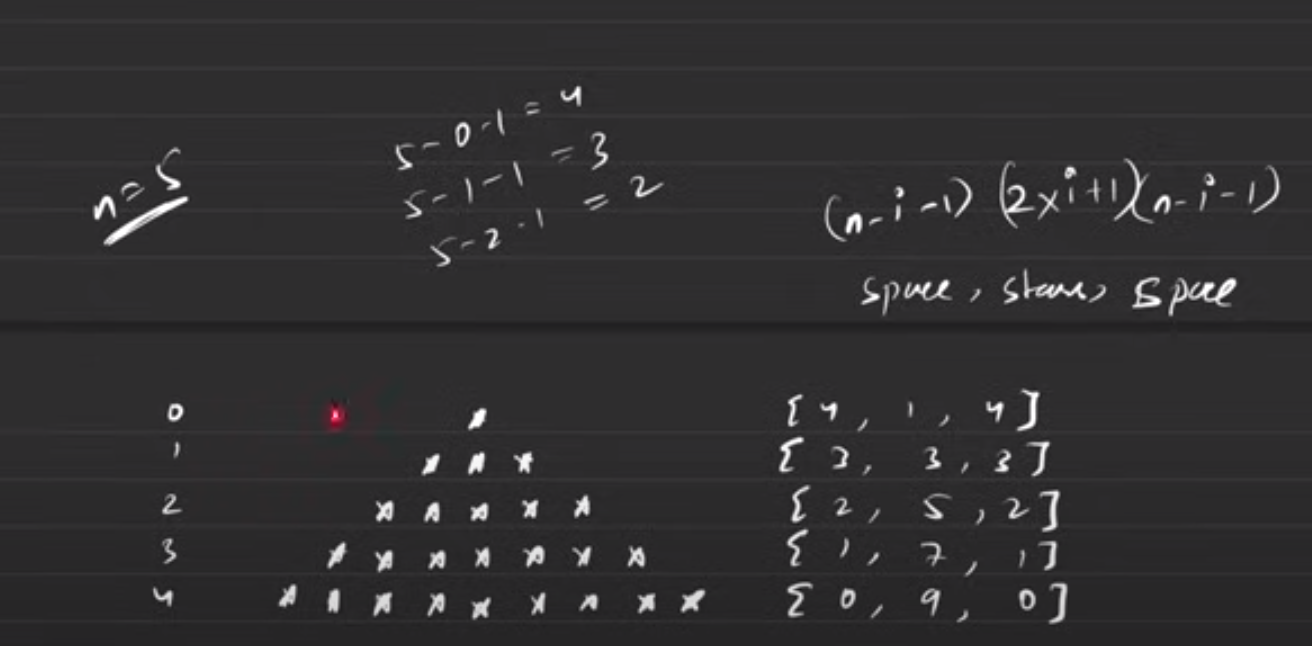 n=5
5-0-1=4
5-1-1=3
5-2-1=2
(n-i-1) (2xi+1)(n-i-1)
space, stars, space
0 * [4, 1, 4]
1 * * * [3, 3, 3]
2 * * * * * [2, 5, 2]
3 * * * * * * * [1, 7, 1]
4 * * * * * * * * * [0, 9, 0]